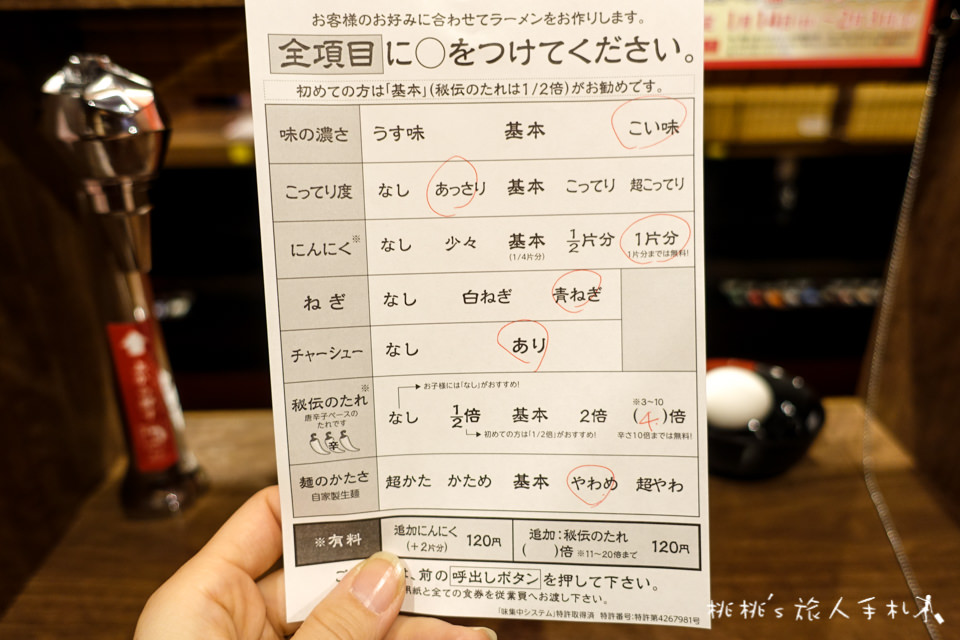 お客様のお好みに合わせてラーメンをお作りします。
全項目に○をつけてください。
初めての方は「基本」(秘伝のたれは1/2倍)がお勧めです。
味の濃さ うす味 基本 こい味
こってり度 なし あっさり 基本 こってり 超こってり
にんにく※ なし 少々 基本 1/2片分 1片分
(1/4片分) 1片分までは無料!
ねぎ なし 白ねぎ 青ねぎ
チャーシュー なし あり
お子様には「なし」がおすすめ!
秘伝のたれ※ なし 1/2倍 基本 2倍 ※3~10 (4)倍
唐辛子ベースの
たれです
辛
初めての方は「1/2倍」がおすすめ! 辛さ10倍までは無料!
麺のかたさ 超かた かため 基本 やわめ 超やわ
自家製生麺
※有料 追加にんにく (+2片分) 120円 追加:秘伝のたれ ( )倍 ※11~20倍まで 120円
は、前の呼出しボタンを押して下さい。
用紙と全ての食券を従業員へお渡し下さい。
「味集中システム」特許取得済 特許番号:特許第4267981号
桃桃's 旅人手札